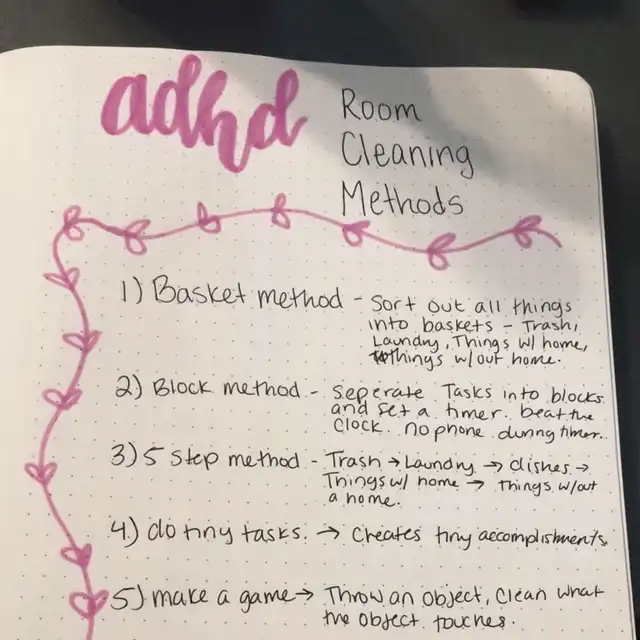 adhd Room
Cleaning
Methods
1) Basket method - Sort out all things
into baskets - Trash,
Laundry, Things w/ home,
things w/out home.
2) Block method - Seperate Tasks into blocks
and set a timer. beat the
clock. no phone during timer.
3) 5 Step method - Trash → Laundry → dishes →
Things w/ home → Things w/out
a home.
4) do tiny tasks. → Creates tiny accomplishments.
5) make a game → Throw an object, Clean what
the object touches.